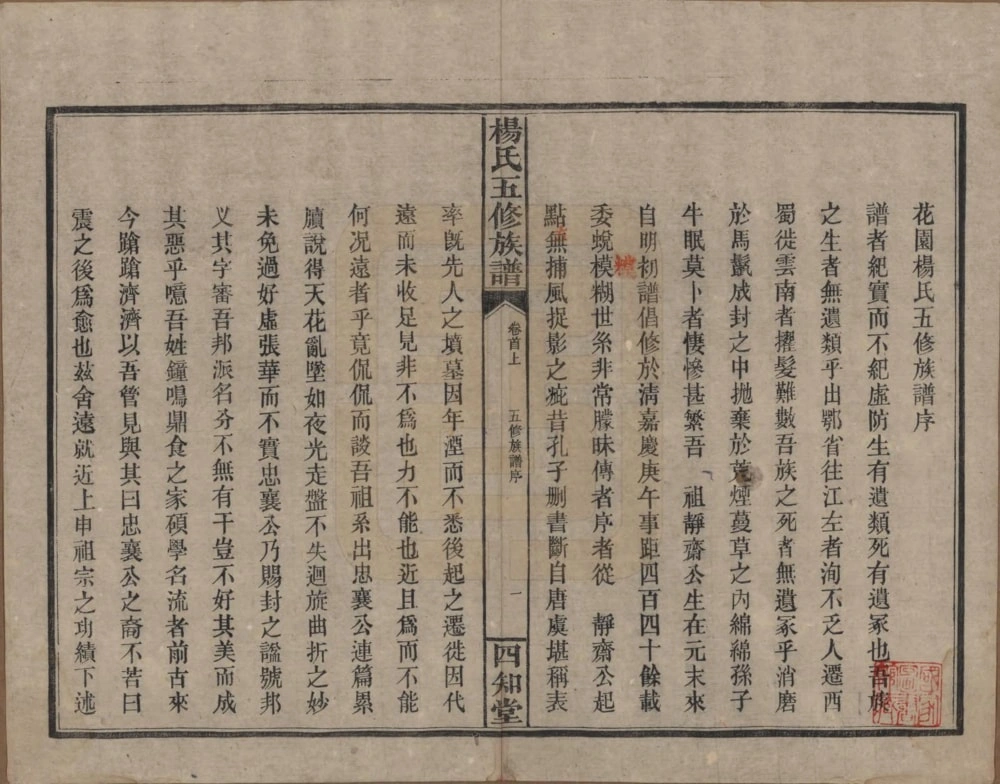 花園楊氏五修族譜序
譜者紀實而不紀虛防生有遺類死有遺冢也吾族
之生者無遺類乎出鄂省往江左者洵不乏人遷西
蜀徙雲南者擢髮難數吾族之死者無遺冢乎消磨
於馬鬣成封之中拋棄於荒煙蔓草之內綿綿孫子
牛眠莫卜者悽慘甚繁吾 祖靜齋公生在元末來
自明初譜倡修於清嘉慶庚午事距四百四十餘載
委蛻模糊世系非常朦昧傳者序者從 靜齋公起
點無捕風捉影之疵昔孔子刪書斷自唐虞堪稱表
楊氏五修族譜
卷首上
五修族譜序
一
四知堂
率旣先人之墳墓因年湮而不悉後起之遷徙因代
遠而未收足見非不爲也力不能也近且爲而不能
何況遠者乎竟侃侃而談吾祖系出忠襄公連篇累
牘說得天花亂墜如夜光走盤不失迴旋曲折之妙
未免過好虛張華而不實忠襄公乃賜封之謚號邦
乂其字審吾邦派名分不無有干豈不好其美而成
其惡乎噫吾姓鐘鳴鼎食之家碩學名流者前古來
今蹌蹌濟濟以吾管見與其曰忠襄公之裔不若曰
震之後爲愈也茲舍遠就近上申祖宗之功績下述